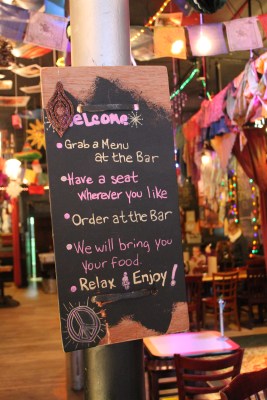 Welcome
• Grab a Menu
at the Bar
• Have a seat
wherever you like
• Order at the Bar
• We will bring you
your food.
• Relax & Enjoy!